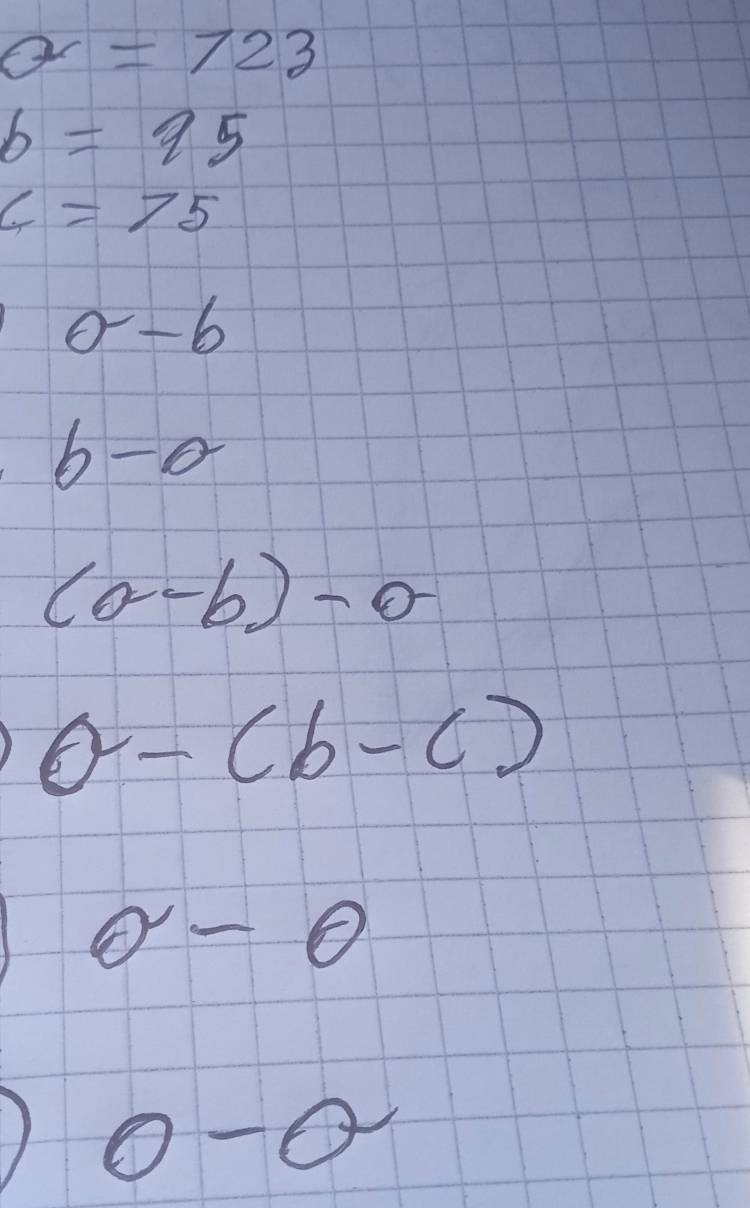 a = 723
b = 95
c = 75
) a - b
b - a
(a - b) - a
) a - (b - c)
) a - 0
) 0 - a